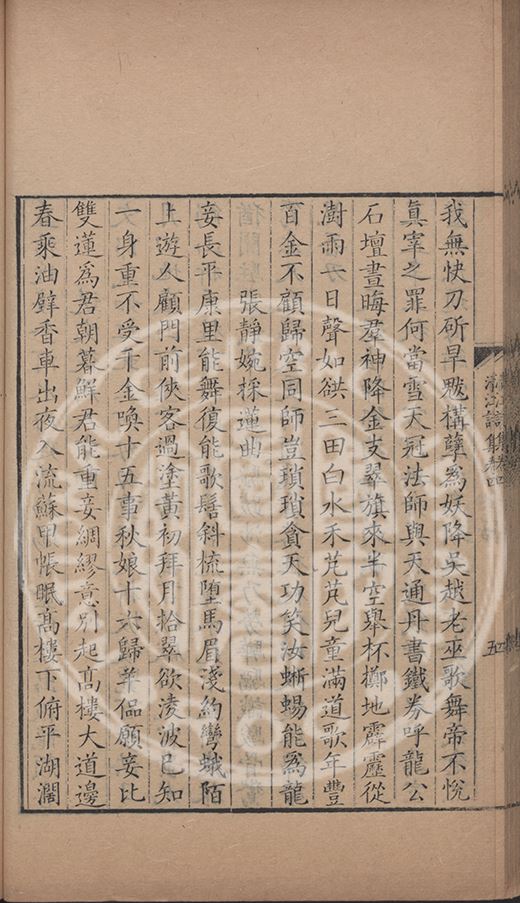 我無快刀斫旱魃構孽為妖降吳越老巫歌舞帝不悅
真宰之罪何當雪天冠法師與天通丹書鐵券呼龍公
石壇晝晦羣神降金支翠旗來半空舉杯擲地霹靂從
澍雨一日聲如谼三田白水禾芃芃兒童滿道歌年豐
百金不顧歸空同師豈瑣瑣貪天功笑汝蜥蜴能為龍
張靜婉採蓮曲
妾長平康里能舞復能歌髻斜梳墮馬眉淺約彎蛾陌
上遊人顧門前俠客過塗黃初拜月拾翠欲淩波已知
一身重不受千金喚十五事秋娘十六歸羊侃願妾比
雙蓮為君朝暮鮮君能重妾綢繆意別起高樓大道邊
春乘油壁香車出夜入流蘇甲帳眠高樓下俯平湖濶
卷四
五